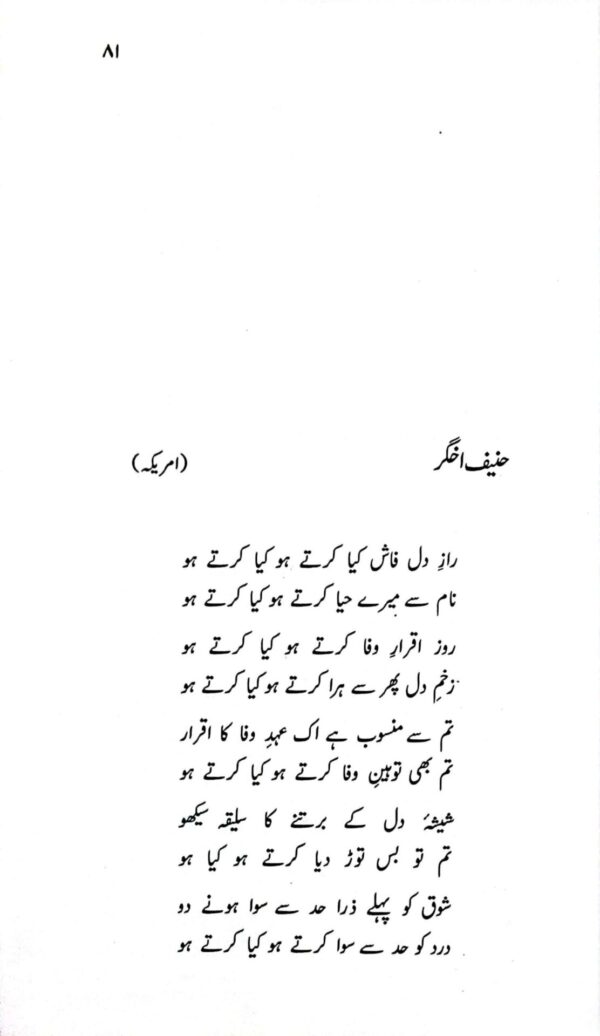 ۸۱
حنیف اخگر (امریکہ)
رازِ دل فاش کیا کرتے ہو کیا کرتے ہو
نام سے میرے حیا کرتے ہو کیا کرتے ہو
روز اقرارِ وفا کرتے ہو کیا کرتے ہو
زخمِ دل پھر سے ہرا کرتے ہو کیا کرتے ہو
تم سے منسوب ہے اک عہدِ وفا کا اقرار
تم بھی توہینِ وفا کرتے ہو کیا کرتے ہو
شیشۂ دل کے برتنے کا سلیقہ سیکھو
تم تو بس توڑ دیا کرتے ہو کیا ہو
شوق کو پہلے ذرا حد سے سوا ہونے دو
درد کو حد سے سوا کرتے ہو کیا کرتے ہو